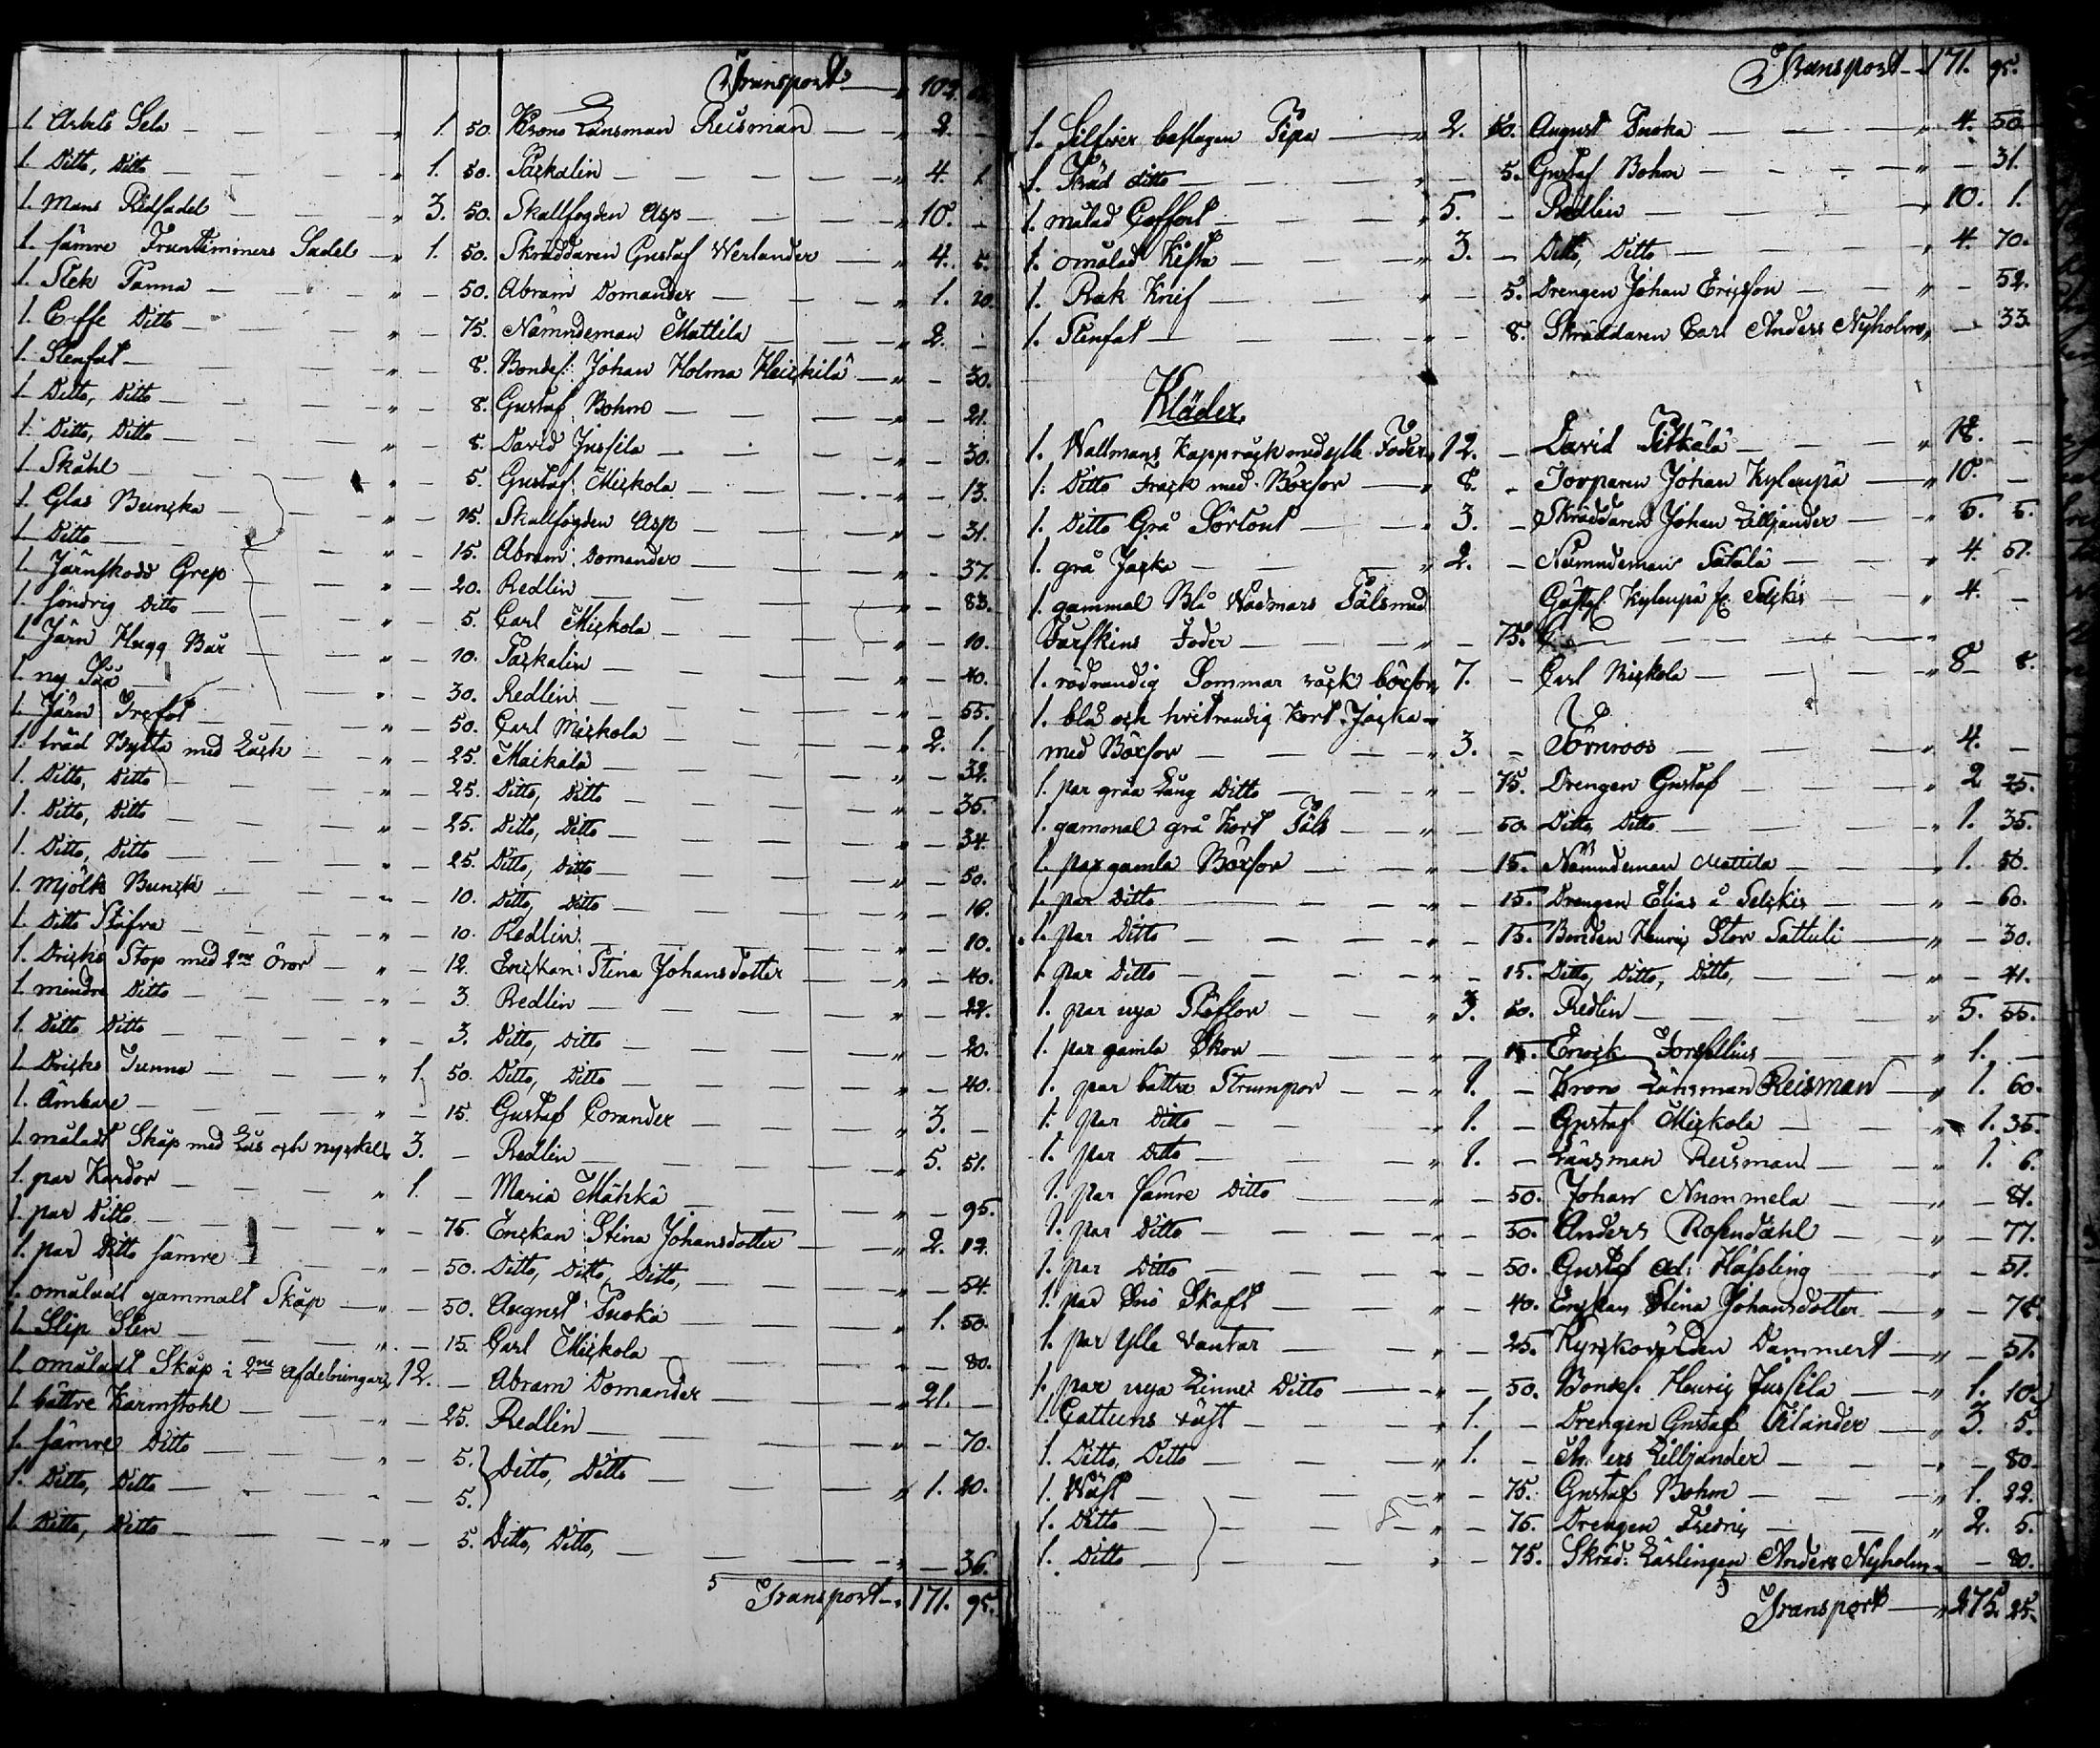 Transport — „ 103.
1. Arbets Sela — „ 1. 50. Krono Länsman Reisman — „ 2. —
1. Ditto, Ditto — „ 1. 50. Packalin — „ 4. 1.
1. Mans Ridsadel — „ 3. 50. Skallfogden Asp — „ 10. —
1. sämre Fruntimmers Sadel — „ 1. 50. Skräddaren Gustaf Werlander — „ 4. 5.
1. Stek Panna — „ — 50. Abram Domander — „ 1. 20.
1. Caffe Ditto — „ — 75. Nämndeman Mattila — „ 2. —
1. Stenfat — „ — 8. Bondes: Johan Holma Heickilä — „ — 30.
1. Ditto, Ditto — „ — 8. Gustaf Bohm — „ — 21.
1. Ditto, Ditto — „ — 8. David Jussila — „ — 30.
1. Skåhl — „ — 5. Gustaf Mickola — „ — 13.
1. Glas Buncka — „ — 15. Skallfogden Asp — „ — 31.
1. Ditto — „ — 15. Abram Domander — „ — 37.
1. Järnskodd Grep — „ — 20. Redlin — „ — 83.
1. söndrig Ditto — „ — 5. Carl Mickola — „ — 10.
1. Järn Hugg Bär — „ — 10. Packalin — „ — 40.
1. ny Såå — „ — 30. Redlin — „ — 55.
1. Järn Trefot — „ — 50. Carl Mickola — „ 2. 1.
1. träd Bytta med Låck — „ — 25. Maikala — „ — 32.
1. Ditto, Ditto — „ — 25. Ditto, Ditto — „ — 35.
1. Ditto, Ditto — „ — 25. Ditto, Ditto — „ — 34.
1. Ditto, Ditto — „ — 25. Ditto, Ditto — „ — 50.
1. Mjölk Bunck — „ — 10. Ditto, Ditto — „ — 16.
1. Ditto Stäfva — „ — 10. Redlin — „ — 10.
1. Dricks Stop med 2ne öror — „ — 12. Enckan Stina Johansdotter — „ — 40.
1. mindre Ditto — „ — 3. Redlin — „ — 22.
1. Ditto Ditto — „ — 3. Ditto, Ditto — „ — 20.
1. Dricks Tunna — „ 1. 50. Ditto, Ditto — „ — 40.
1. Ämbare — „ — 15. Gustaf Corander — „ 3. —
1. måladt Skåp med Lås och nyckel „ 3. — Redlin — „ 5. 51.
1. par Kardor — „ 1. — Maria Mähkä — „ — 95.
1. par Ditto — „ — 75. Enckan Stina Johansdotter — „ 2. 12.
1. par Ditto sämre — „ — 50. Ditto, Ditto, Ditto, — „ — 54.
1. omåladt gammalt Skåp — „ — 50. August Puoka — „ 1. 50.
1. Slip Sten — „ — 15. Carl Mickola — „ — 80.
1. omåladt Skåp i 2ne afdelningar „ 12. — Abram Domander — „ 21. —
1. bättre Karmstohl — „ — 25. Redlin — „ — 70.
1. sämre Ditto — „ — 5. } Ditto, Ditto — „ 1. 20.
1. Ditto, Ditto — „ — 5.
1. Ditto, Ditto — „ — 5. Ditto, Ditto, — „ — 36.
Transport — „ 171. 95.
Transport — „ 171. 95.
1. Silfver beslagen Pipa — „ 2. 50. August Puoka — „ 4. 50.
1. Träd ditto — „ — 5. Gustaf Bohm — „ — 31.
1. målad Coffert — „ 5. — Redlin — „ 10. 1.
1. omålad Kista — „ 3. — Ditto, Ditto — „ 4. 70.
1. Rak Knif — „ — 5. Drengen Johan Ericsson — „ — 52.
1. Stenfat — „ — 8. Skräddaren Carl Anders Nyholm „ — 33.
Kläder.
1. Wallmans Kappråck med ylle Foder „ 12. — David Pitkälä — „ 18. —
1. Ditto Frack med Böxsor — „ 8. — Torparen Johan Kylenpä — „ 10. —
1. Ditto Grå Sörtout — „ 3. — Skräddaren Johan Lilljander — „ 5. 5.
1. grå Jacka — „ 2. — Nämndeman Satala — „ 4. 51.
1. gammal Blå Wadmars Päls med Gustaf Kylenpä fr. Selckis — „ 4. —
Fårskins Foder — „ — 75.
1. rödrandig Sommar råck böxsor „ 7. — Carl Mickola — „ 8. 8.
1. blå och hvitrandig Kort Jacka —
med Böxsor — „ 3. — Törnroos — „ 4. —
1. par gråa Lång Ditto — „ — 75. Drengen Gustaf — „ 2. 25.
1. gammal grå Kort Päls — „ — 50. Ditto, Ditto — „ 1. 35.
1. par gamla Böxsor — „ — 15. Nämndeman Mattila — „ 1. 50.
1. par Ditto — „ — 15. Drengen Elias å Selckis — „ — 60.
1. par Ditto — „ — 15. Bonden Henric Stor Sattuli — „ — 30.
1. par Ditto — „ — 15. Ditto, Ditto, Ditto, — „ — 41.
1. par nya Stöflor — „ 3. 50. Redlin — „ 5. 55.
1. par gamla Skor — „ — 15. Enock Forsellius — „ 1. —
1. par bättre Strumpor — „ 1. — Krono Länsman Reisman — „ 1. 60.
1. par Ditto — „ 1. — Gustaf Mickola — „ 1. 35.
1. par Ditto — „ 1. — Länsman Reisman — „ 1. 6.
1. par sämre Ditto — „ — 50. Johan Nummela — „ — 81.
1. par Ditto — „ — 50. Anders Rosendahl — „ — 77.
1. par Ditto — „ — 50. Gustaf Ad: Hässling — „ — 51.
1. par Snö Skaft — „ — 40. Enckan Stina Johansdotter — „ — 78.
1. par ylle vantar — „ — 25. Kyrckovärden Dammert — „ — 51.
1. par nya Linne Ditto — „ — 50. Bondes. Henric Jussila — „ 1. 10.
1. Cattuns väst — „ 1. — Drengen Gustaf Silander — „ 3. 5.
1. Ditto, Ditto — „ 1. — Lilljander — „ — 80.
1. Wäst — „ — 75. Gustaf Bohm — „ 1. 22.
1. Ditto — „ — 75. Drengen Fredric — „ 2. 5.
1. Ditto — „ — 75. Skräd: Lärlingen Anders Nyholm „ — 80.
Transport — „ 275. 25.